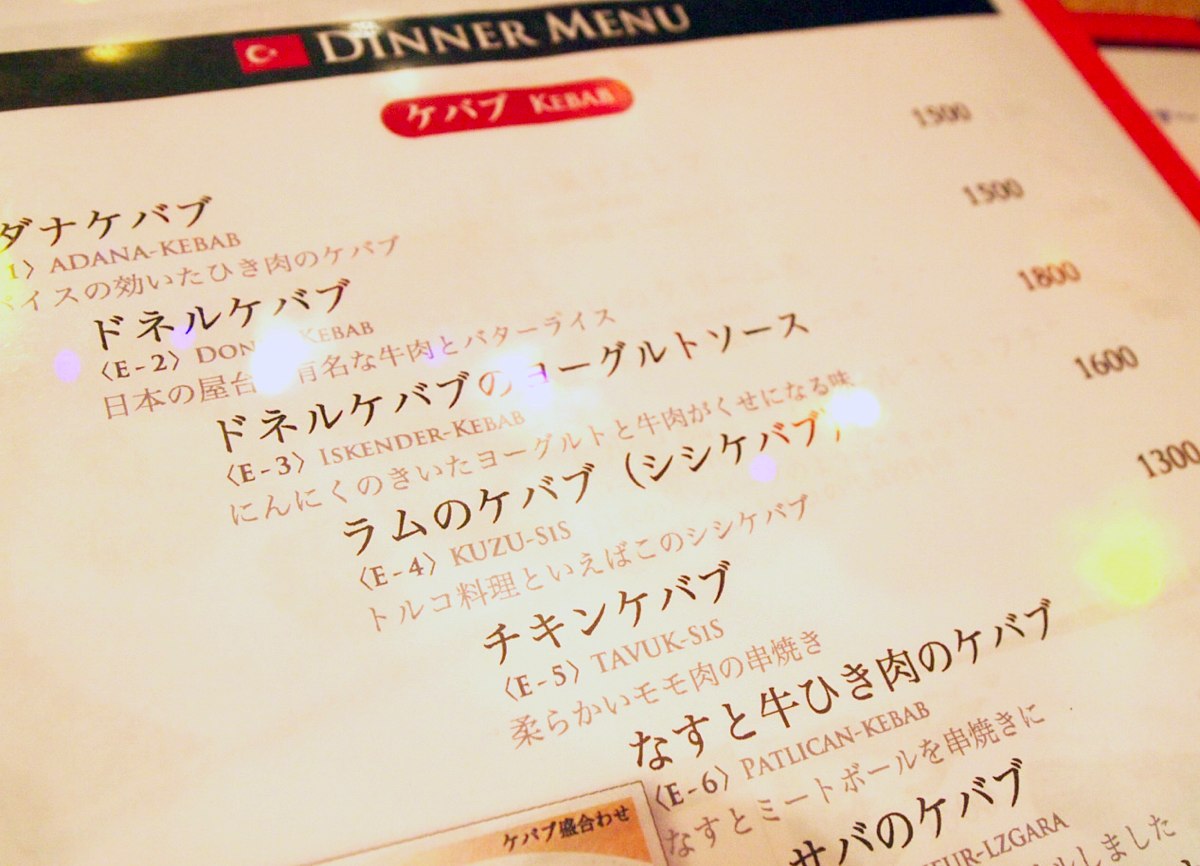 DINNER MENU
ケバブ KEBAB
ダナケバブ 1500
1〉 ADANA-KEBAB
イスの効いたひき肉のケバブ
ドネルケバブ 1500
〈E-2〉 KEBAB
日本の屋台 有名な牛肉とバターライス
ドネルケバブのヨーグルトソース 1800
〈E-3〉 ISKENDER-KEBAB
にんにくのきいたヨーグルトと牛肉がくせになる味
ラムのケバブ（シシケバブ） 1600
〈E-4〉 KUZU-SIS
トルコ料理といえばこのシシケバブ
チキンケバブ 1300
〈E-5〉 TAVUK-SIS
柔らかいモモ肉の串焼き
なすと牛ひき肉のケバブ
〈E-6〉 PATLICAN-KEBAB
なすとミートボールを串焼きに
サバのケバブ
EUR-LZGARA
しました
ケバブ盛合わせ